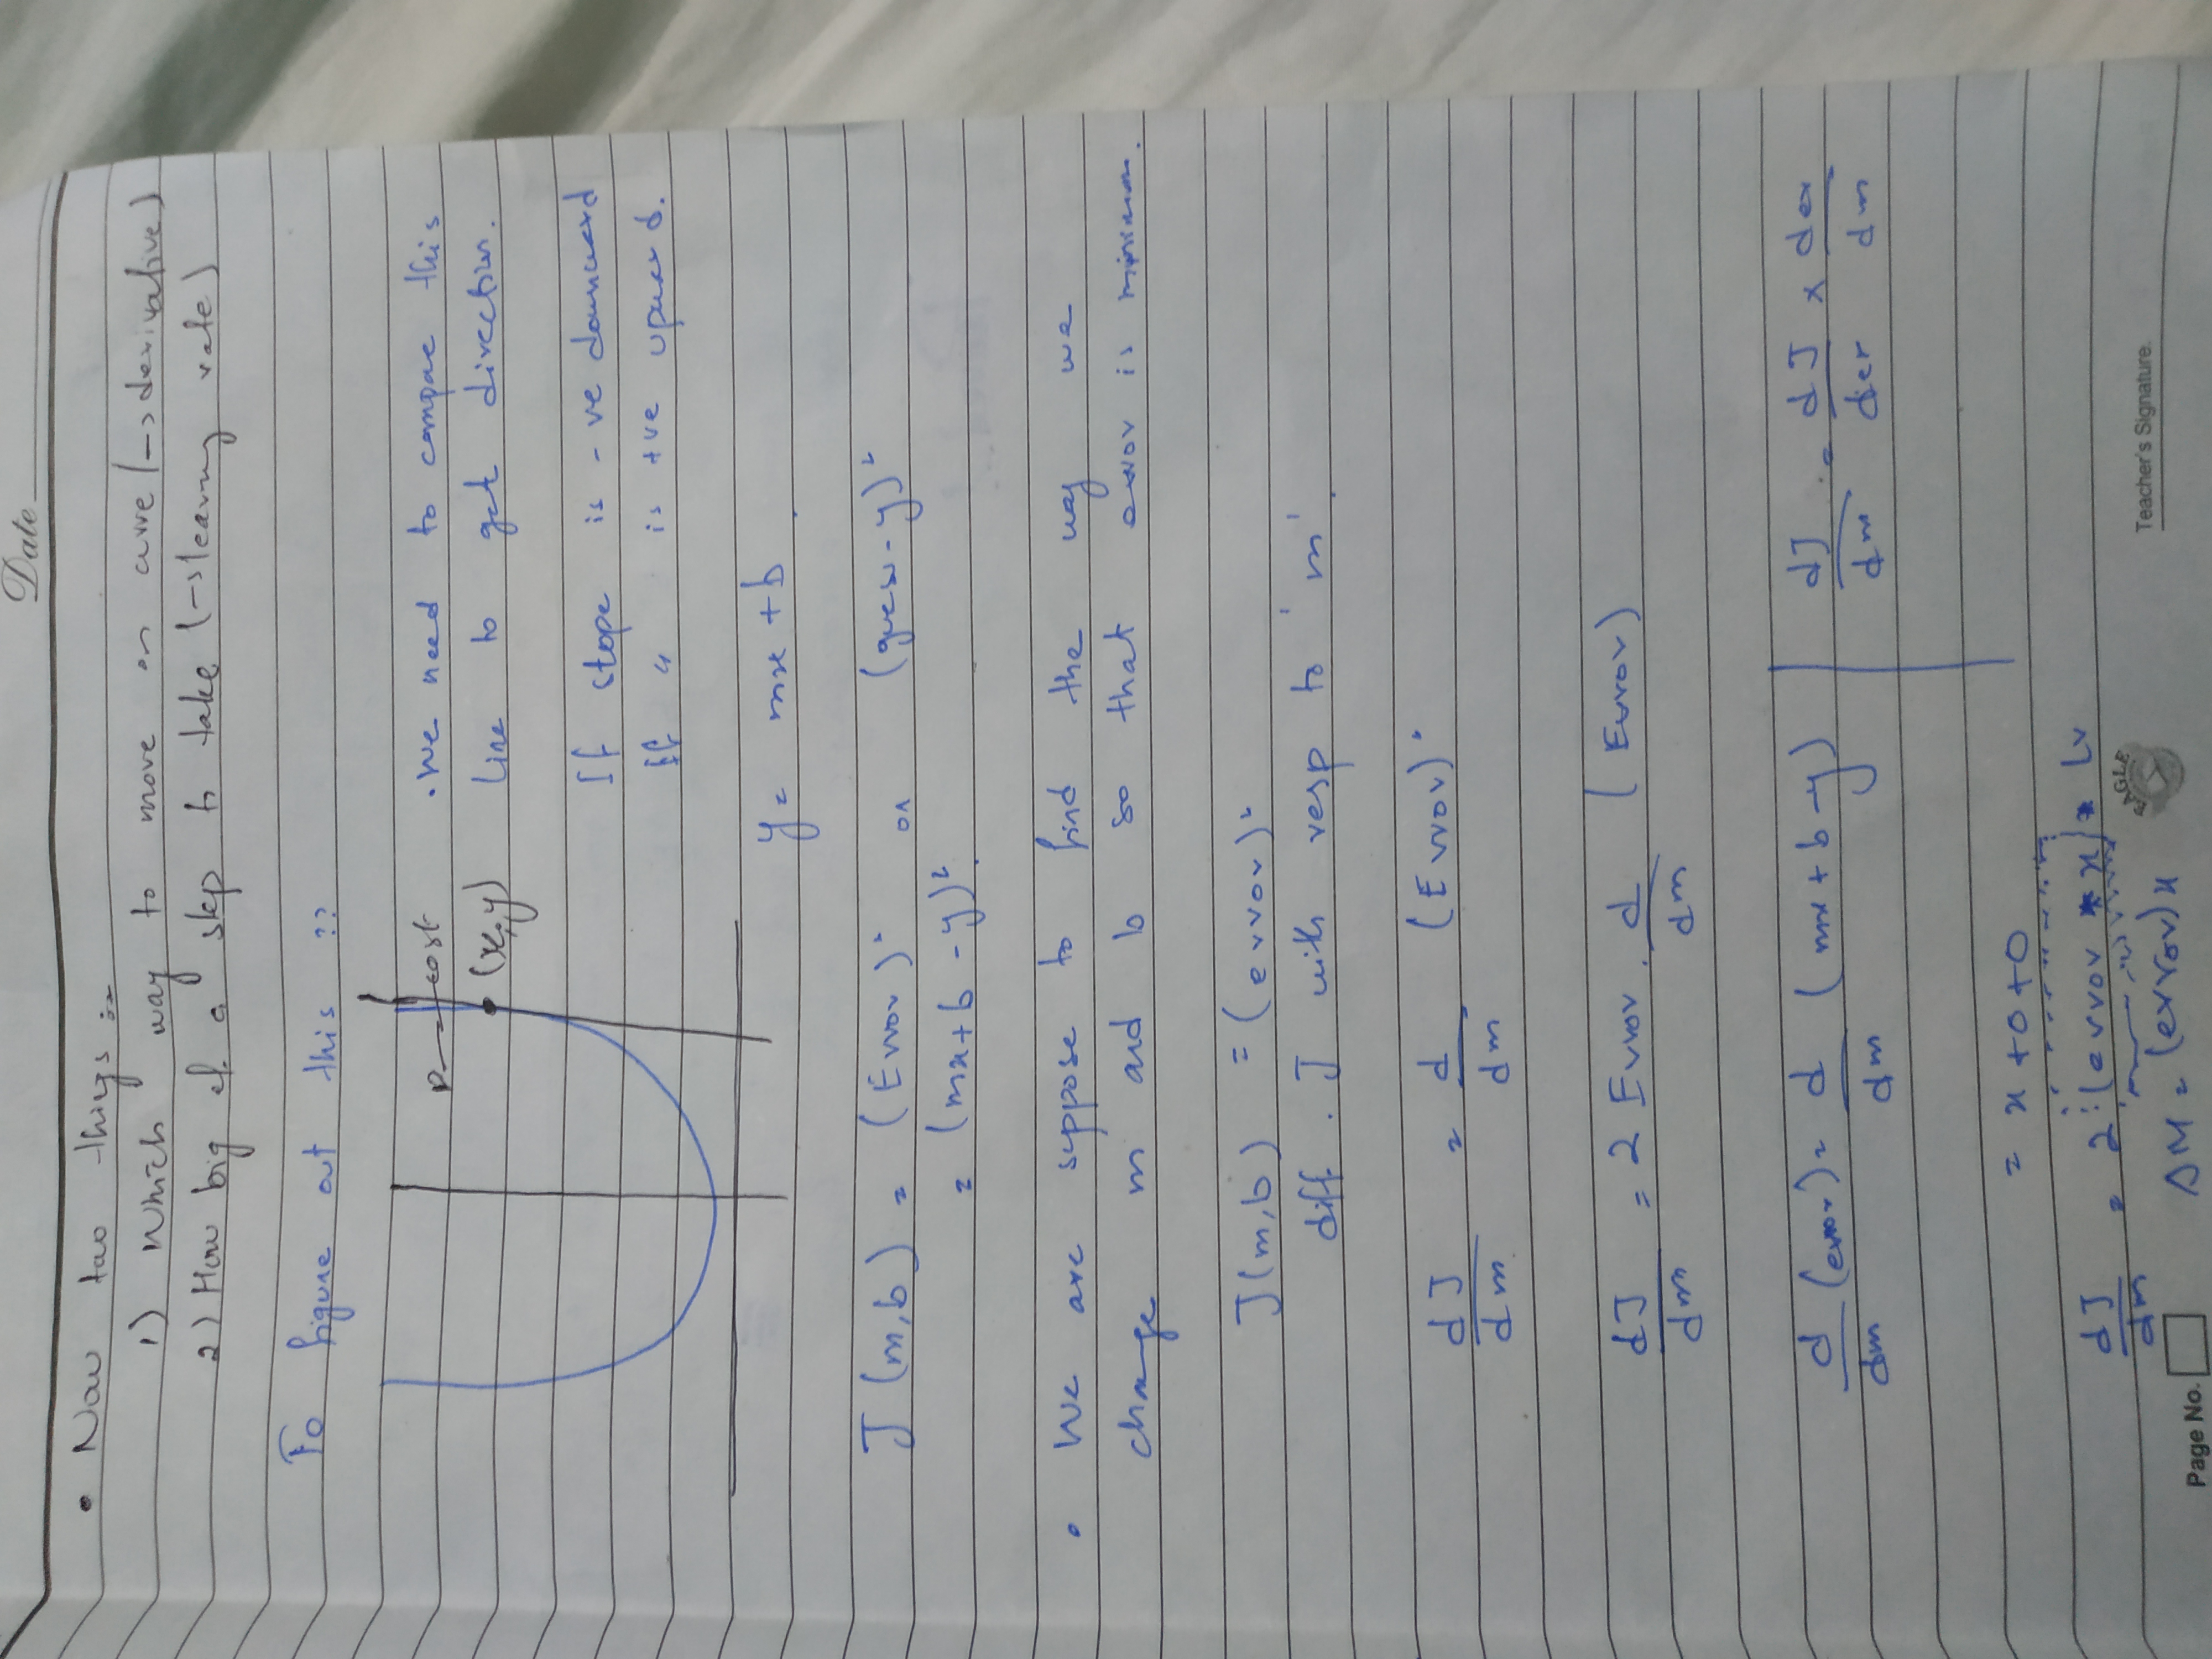 Date
• Now two things :-
1) Which way to move on curve (-> derivative)
2) How big of a step to take (-> learning rate)
To figure out this ??
cost
(x,y)
. We need to compae this
line to get direction.
If slope is -ve downward
If " is +ve upward.
y = mx + b
J(m,b) = (Error)² or (guess-y)²
= (mx+b-y)²
• We are suppose to find the way we
change m and b so that error is minimum.
J(m,b) = (error)²
diff. J with resp to 'm'
dJ/dm = d/dm (Error)²
dJ/dm = 2 Error . d/dm (Error)
d/dm (error) = d/dm (mx + b - y) | dJ/dm = dJ/der x der/dm
= x + 0 + 0
dJ/dm = 2 (error * x) * Lr
ΔM = (error) x
Page No.
EAGLE
Teacher's Signature